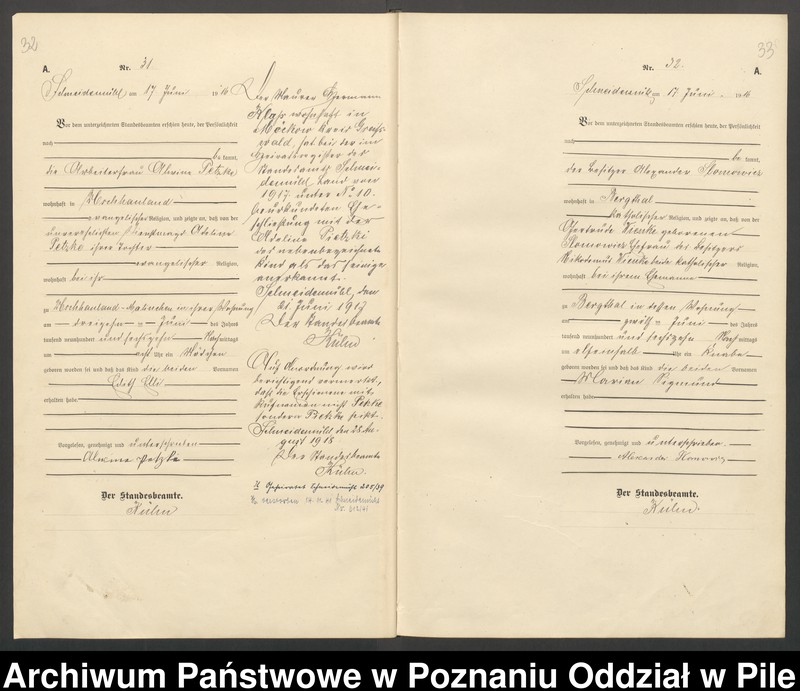 32
A.
Nr. 31.
Schneidemühl am 17 Juni 1916
Vor dem unterzeichneten Standesbeamten erschien heute, der Persönlichkeit
nach
be kannt,
die Arbeiterfrau Alwine Petzke
wohnhaft in Hochhauland
evangelischer Religion, und zeigte an, daß von der
unverehelichten Adeline
Petzke ihrer Tochter
evangelischer Religion,
wohnhaft bei ihr
zu Hochhauland in ihrer Wohnung
am dreizehn ten Juni des Jahres
tausend neunhundert und sechzehn Nachmittags
um acht Uhr ein Mädchen
geboren worden sei und daß das Kind die beiden Vornamen
Edith Elli
erhalten habe.
Vorgelesen, genehmigt und unterschrieben
Alwine Petzke
Der Standesbeamte.
Kühn
Der Maurer Hermann
Klahr wohnhaft in
Möckow Kreis Greifs-
wald, hat bei der im
Heiratsregister des
Standesamts Schnei-
demühl Land vom
1917 unter No 10.
beurkundeten Ehe-
schließung mit der
Adeline Pietzki
das nebenbezeichnete
Kind als das seinige
anerkannt.
Schneidemühl, den
21 Juni 1917
Der Standesbeamte
Kühn
Auf Anordnung wird
berichtigend vermerkt,
daß die Erschienene mit
Zunamen nicht Petzke
sondern Betzke heißt.
Schneidemühl den 28 Au-
gust 1918
Der Standesbeamte
Kühn.
Geheiratet Schneidemühl 205/39
Schneidemühl
33
Nr. 32.
A.
Schneidemühl am 17 Juni 1916
Vor dem unterzeichneten Standesbeamten erschien heute, der Persönlichkeit
nach
be kannt,
der Besitzer Alexander Slomowicz
wohnhaft in Bergthal
katholischer Religion, und zeigte an, daß von der
Gertrude Wenke geborenen
Slomowicz Ehefrau des Besitzers
Nikodemus Wenke beide katholischer Religion,
wohnhaft bei ihrem Ehemanne
zu Bergthal in dessen Wohnung
am zwölf ten Juni des Jahres
tausend neunhundert und sechzehn Nachmittags
um elfeinhalb Uhr ein Knabe
geboren worden sei und daß das Kind die beiden Vornamen
Marian Sigmund
erhalten habe.
Vorgelesen, genehmigt und unterschrieben.
Alexander
Der Standesbeamte.
Kühn.
Archiwum Państwowe w Poznaniu Oddział w Pile